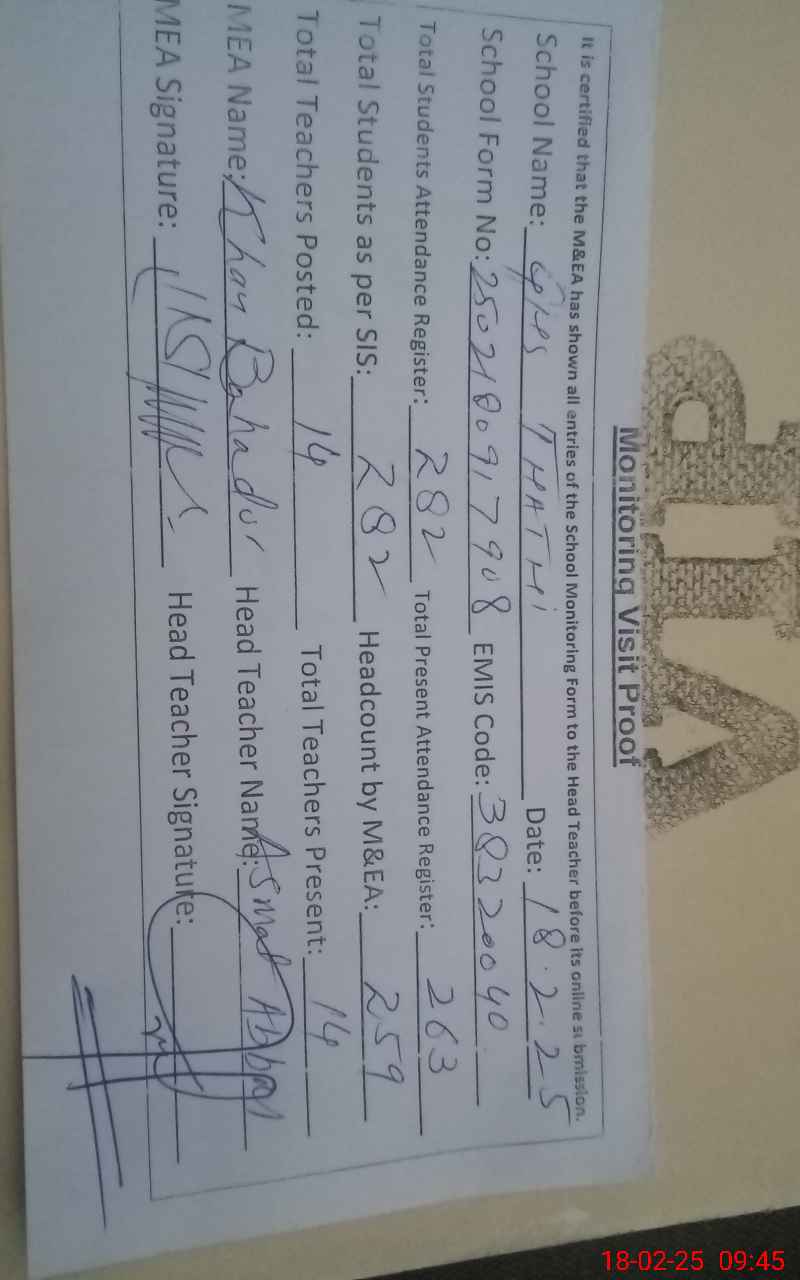 VIP
Monitoring Visit Proof
It is certified that the M&EA has shown all entries of the School Monitoring Form to the Head Teacher before its online submission.
School Name: GHS THATHI Date: 18.2.25
School Form No: 2502180917908 EMIS Code: 38320040
Total Students Attendance Register: 282 Total Present Attendance Register: 263
Total Students as per SIS: 282 Headcount by M&EA: 259
Total Teachers Posted: 14 Total Teachers Present: 14
MEA Name: Khan Bahadur Head Teacher Name: Asmat Abbas
MEA Signature: Head Teacher Signature:
18-02-25 09:45